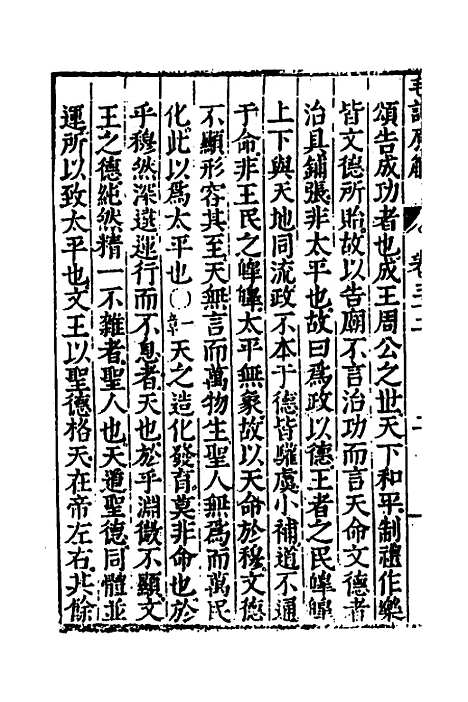 毛詩原解
卷三十二
頌告成功者也成王周公之世天下和平制禮作樂
皆文德所貽故以告廟不言治功而言天命文德者
治具鋪張非太平也故曰爲政以德王者之民皞皞
上下與天地同流政不本于德皆驩虞小補道不通
于命非王民之皞皞太平無象故以天命於穆文德
不顯形容其至天無言而萬物生聖人無爲而萬民
化此以爲太平也○一章天之造化發育莫非命也於
乎穆然深遠運行而不息者天也於乎淵微不顯文
王之德純然精一不雜者聖人也天道聖德同體並
運所以致太平也文王以聖德格天在帝左右其餘